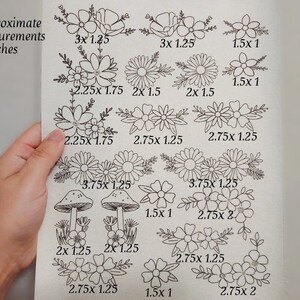 oximate
urements
hes
3x 1.25 3x 1.25 1.5x 1
1.5x 1
2.25x 1.75 2x 1.5 2x 1.5
2.25x 1.75 2.75x 1.25 2.75x 1.25
3.75x 1.25 3.75x 1.25
1.5x 1 2.75x 2
2x 1.25 2x 1.25 2.75x 1.25
2.75x 1.25 1.5x 1 2.75x 2